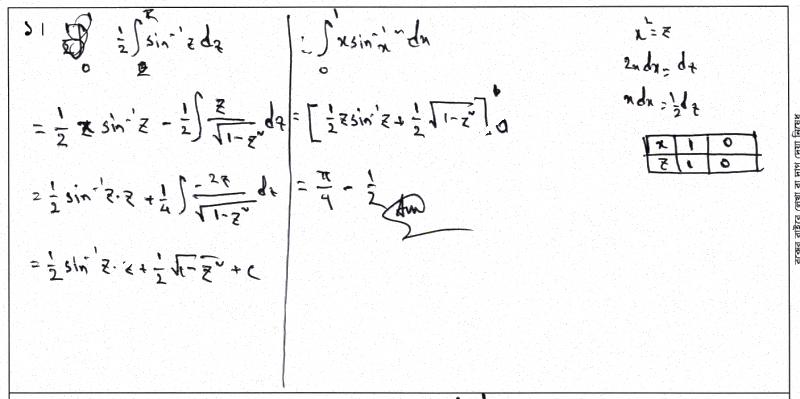 ১।
½ ∫ sin⁻¹ z dz
= ½ z sin⁻¹ z − ½ ∫ z/√(1−z²) dz
= ½ sin⁻¹ z · z + ¼ ∫ −2z/√(1−z²) dz
= ½ sin⁻¹ z · z + ½ √(1−z²) + c
∴ ∫₀¹ x sin⁻¹ x² dx
= [½ z sin⁻¹ z + ½ √(1−z²)]₀¹
= π/4 − ½
Ans
x² = z
2x dx = dz
x dx = ½ dz
x 1 0
z 1 0
বক্সের বাইরে লেখা বা দাগ দেয়া নিষেধ